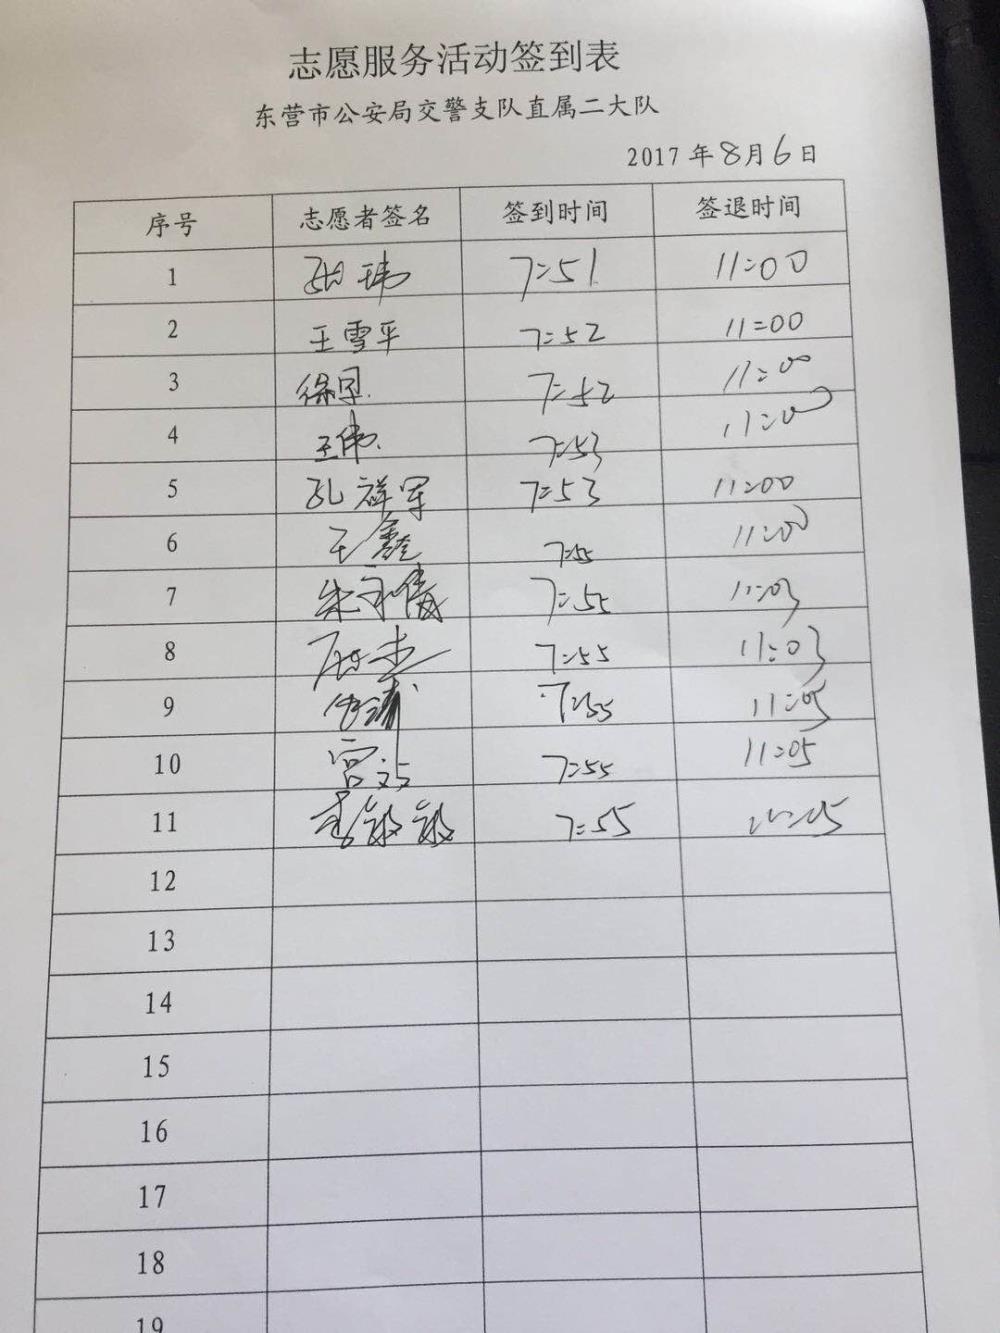 志愿服务活动签到表
东营市公安局交警支队直属二大队
2017 年 8 月 6 日
序号 志愿者签名 签到时间 签退时间
1 张玮 7:51 11:00
2 王雪平 7:52 11:00
3 徐 7:52 11:00
4 王伟 7:53 11:00
5 孔祥军 7:53 11:00
6 王鑫 7:55 11:00
7 朱 7:55 11:03
8 7:55 11:03
9 7:55 11:05
10 宫 7:55 11:05
11 李敏敏 7:55 11:05
12
13
14
15
16
17
18
19